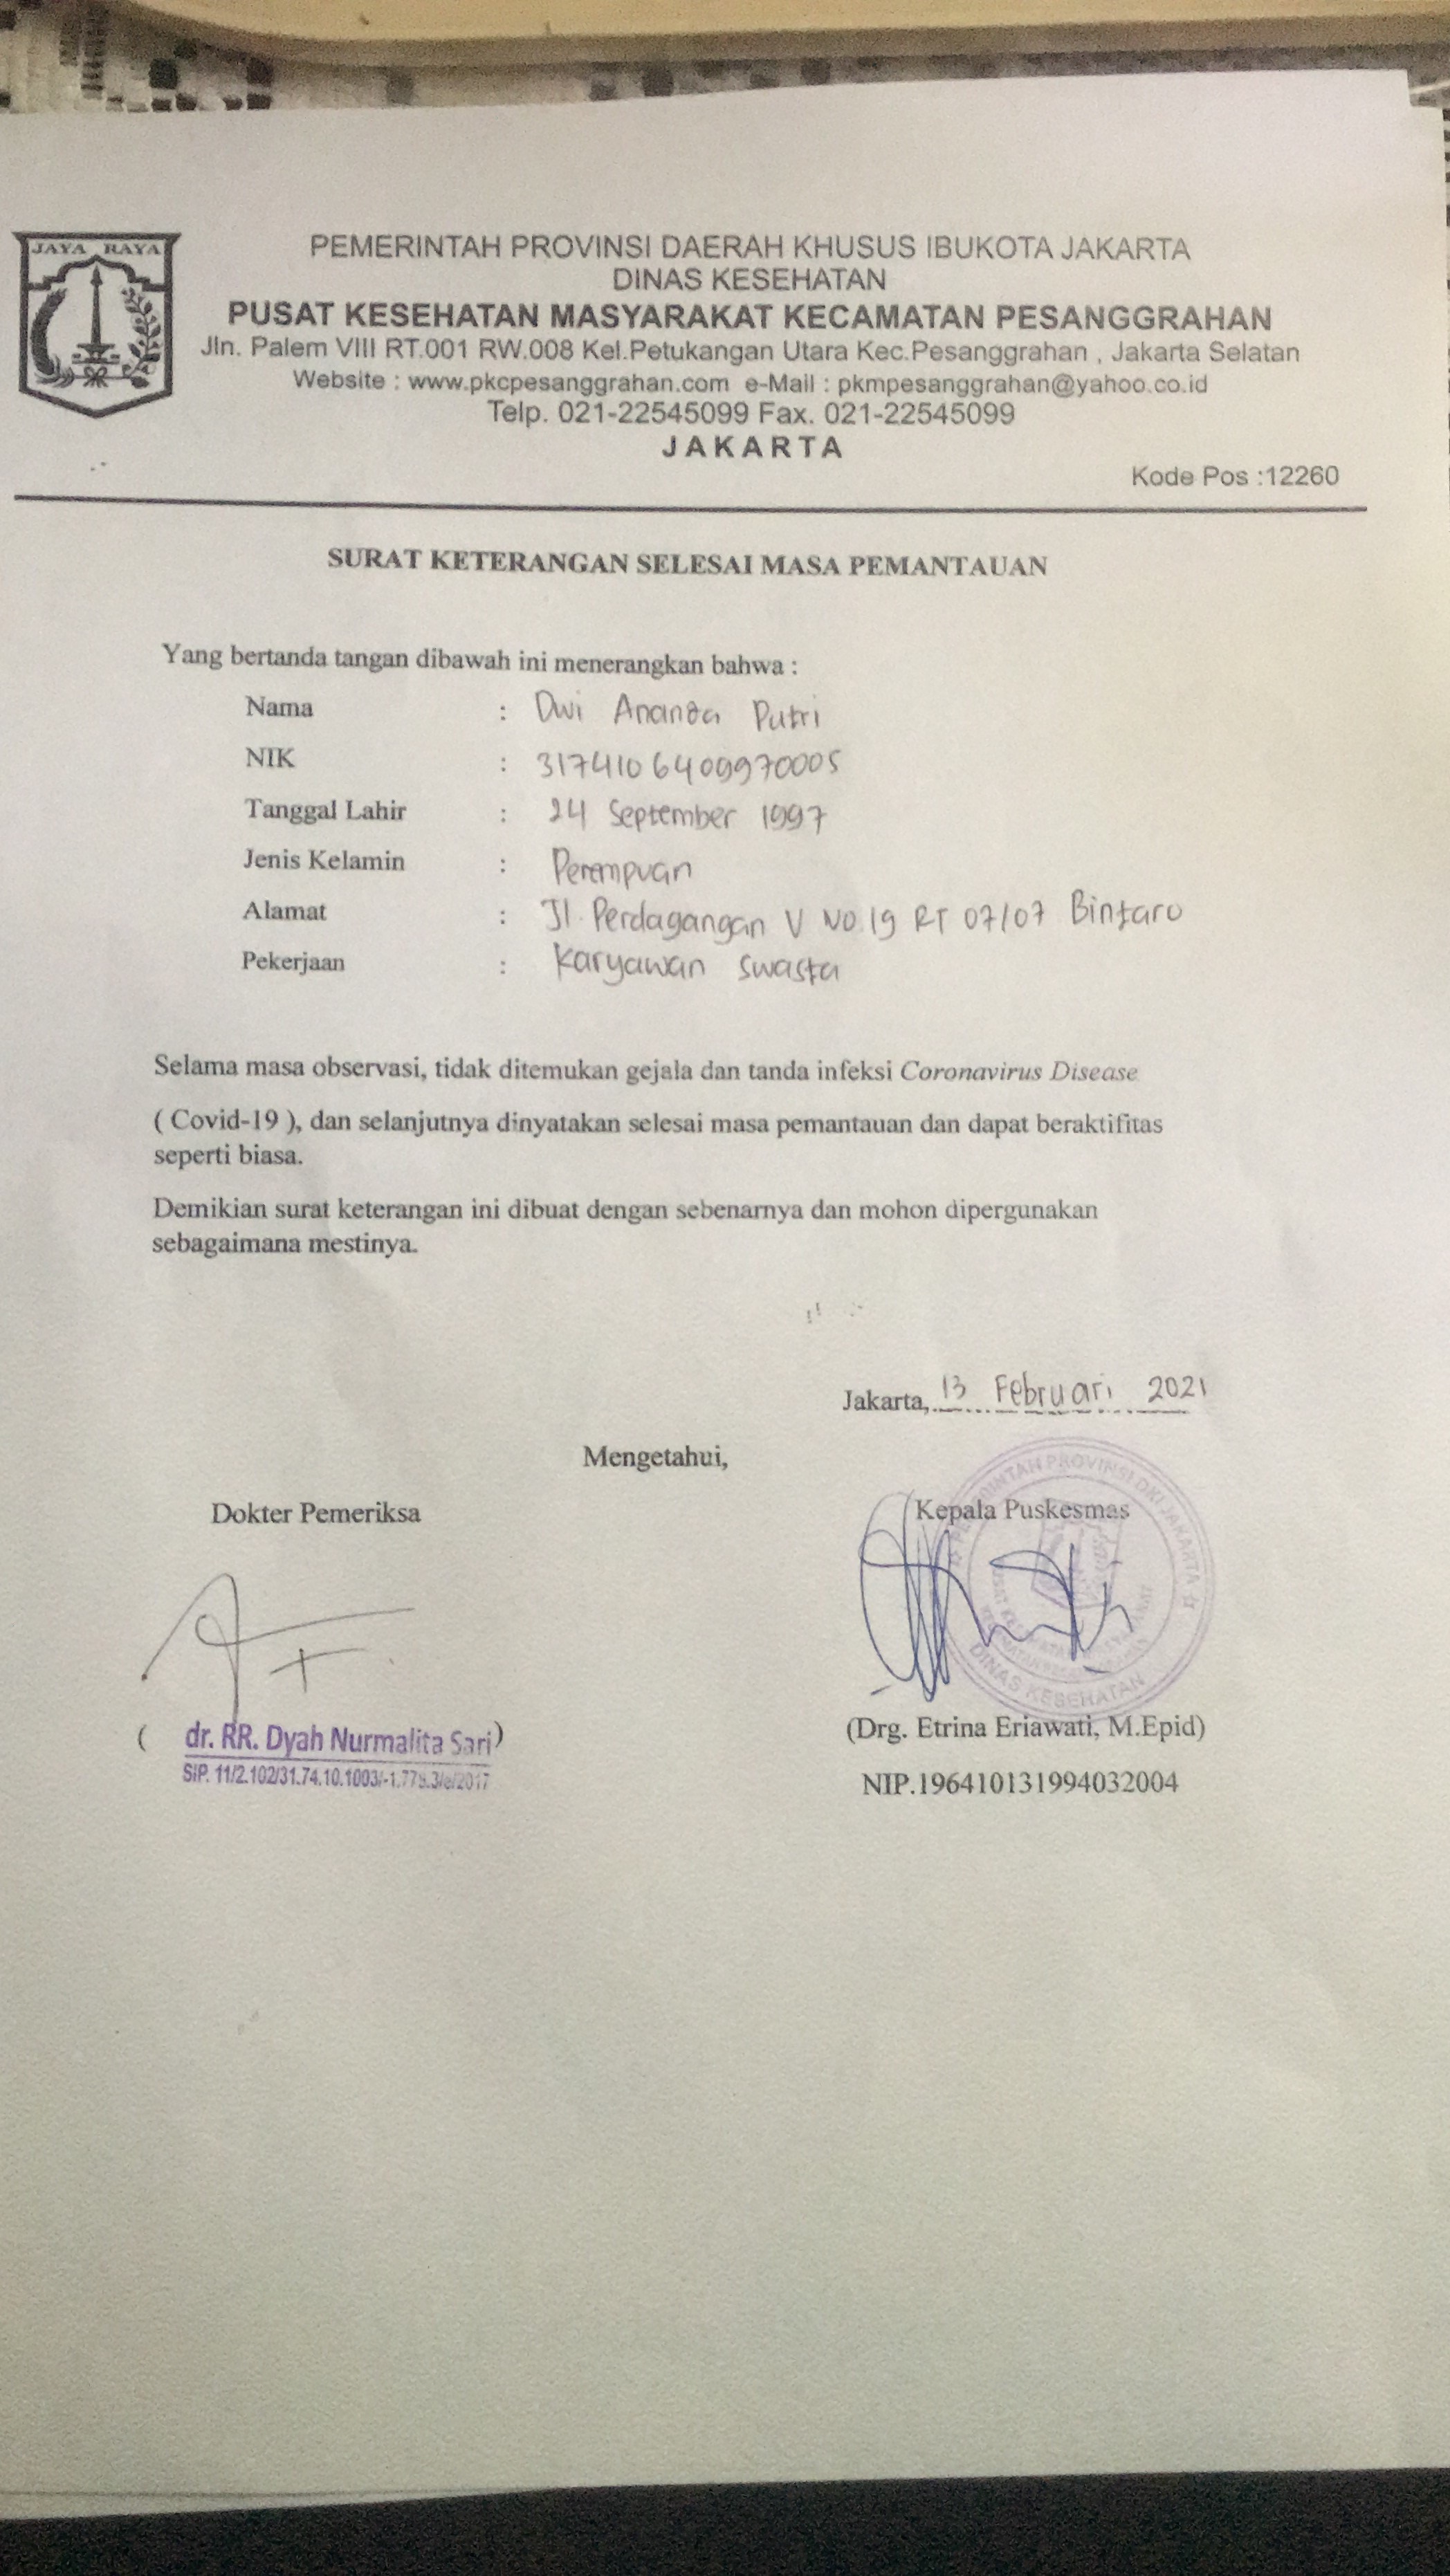 JAYA RAYA
PEMERINTAH PROVINSI DAERAH KHUSUS IBUKOTA JAKARTA
DINAS KESEHATAN
PUSAT KESEHATAN MASYARAKAT KECAMATAN PESANGGRAHAN
Jln. Palem VIII RT.001 RW.008 Kel.Petukangan Utara Kec.Pesanggrahan , Jakarta Selatan
Website : www.pkcpesanggrahan.com e-Mail : pkmpesanggrahan@yahoo.co.id
Telp. 021-22545099 Fax. 021-22545099
JAKARTA
Kode Pos :12260
SURAT KETERANGAN SELESAI MASA PEMANTAUAN
Yang bertanda tangan dibawah ini menerangkan bahwa :
Nama : Dwi Ananda Putri
NIK : 3174106409970005
Tanggal Lahir : 24 September 1997
Jenis Kelamin : Perempuan
Alamat : Jl. Perdagangan V No.19 RT 07/07 Bintaro
Pekerjaan : Karyawan Swasta
Selama masa observasi, tidak ditemukan gejala dan tanda infeksi Coronavirus Disease
( Covid-19 ), dan selanjutnya dinyatakan selesai masa pemantauan dan dapat beraktifitas
seperti biasa.
Demikian surat keterangan ini dibuat dengan sebenarnya dan mohon dipergunakan
sebagaimana mestinya.
Jakarta, 13 Februari 2021
Mengetahui,
Dokter Pemeriksa
Kepala Puskesmas
PEMERINTAH PROVINSI DKI JAKARTA
DINAS KESEHATAN
( dr. RR. Dyah Nurmalita Sari )
SIP. 11/2.102/31.74.10.1003/-1.779.3/e/2017
(Drg. Etrina Eriawati, M.Epid)
NIP.196410131994032004